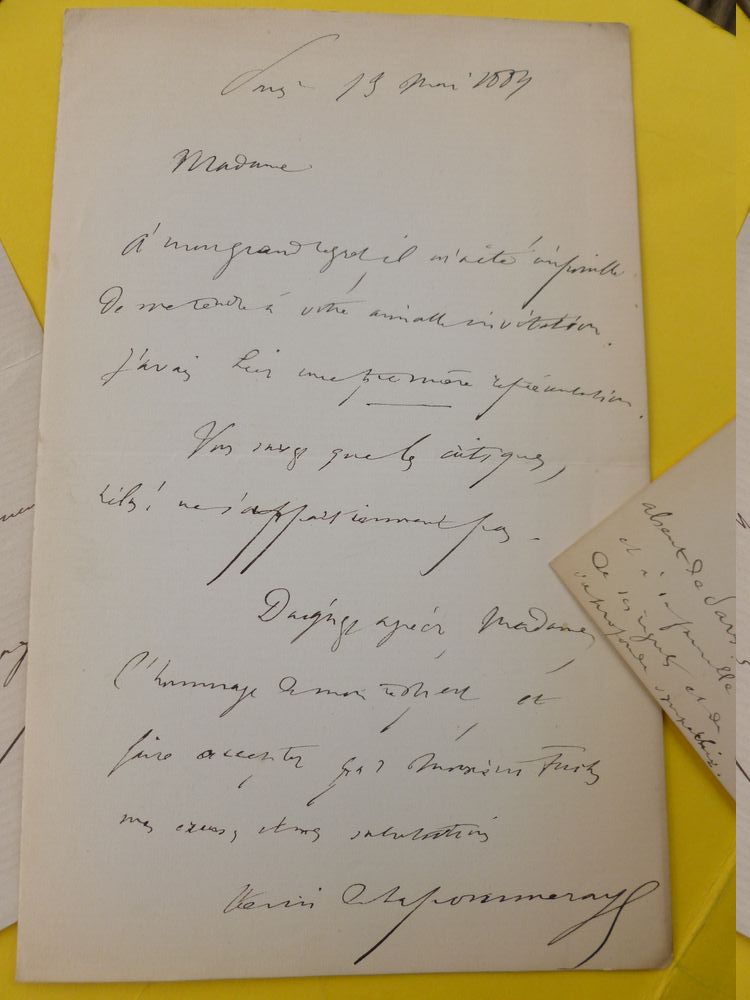 13 Mai 1884
Madame
À mon grand regret il m'a été impossible
de me rendre à votre aimable invitation.
J'avais hier une première représentation.
Vous savez que les critiques,
hélas! ne s'appartiennent pas.
Daignez agréer, Madame,
l'hommage de mon respect et
faire accepter par Monsieur Fuchs
mes excuses, et mes salutations
Henri de Lapommeraye
absent de Paris
et à sa famille
de ses regrets et de
sympathie.